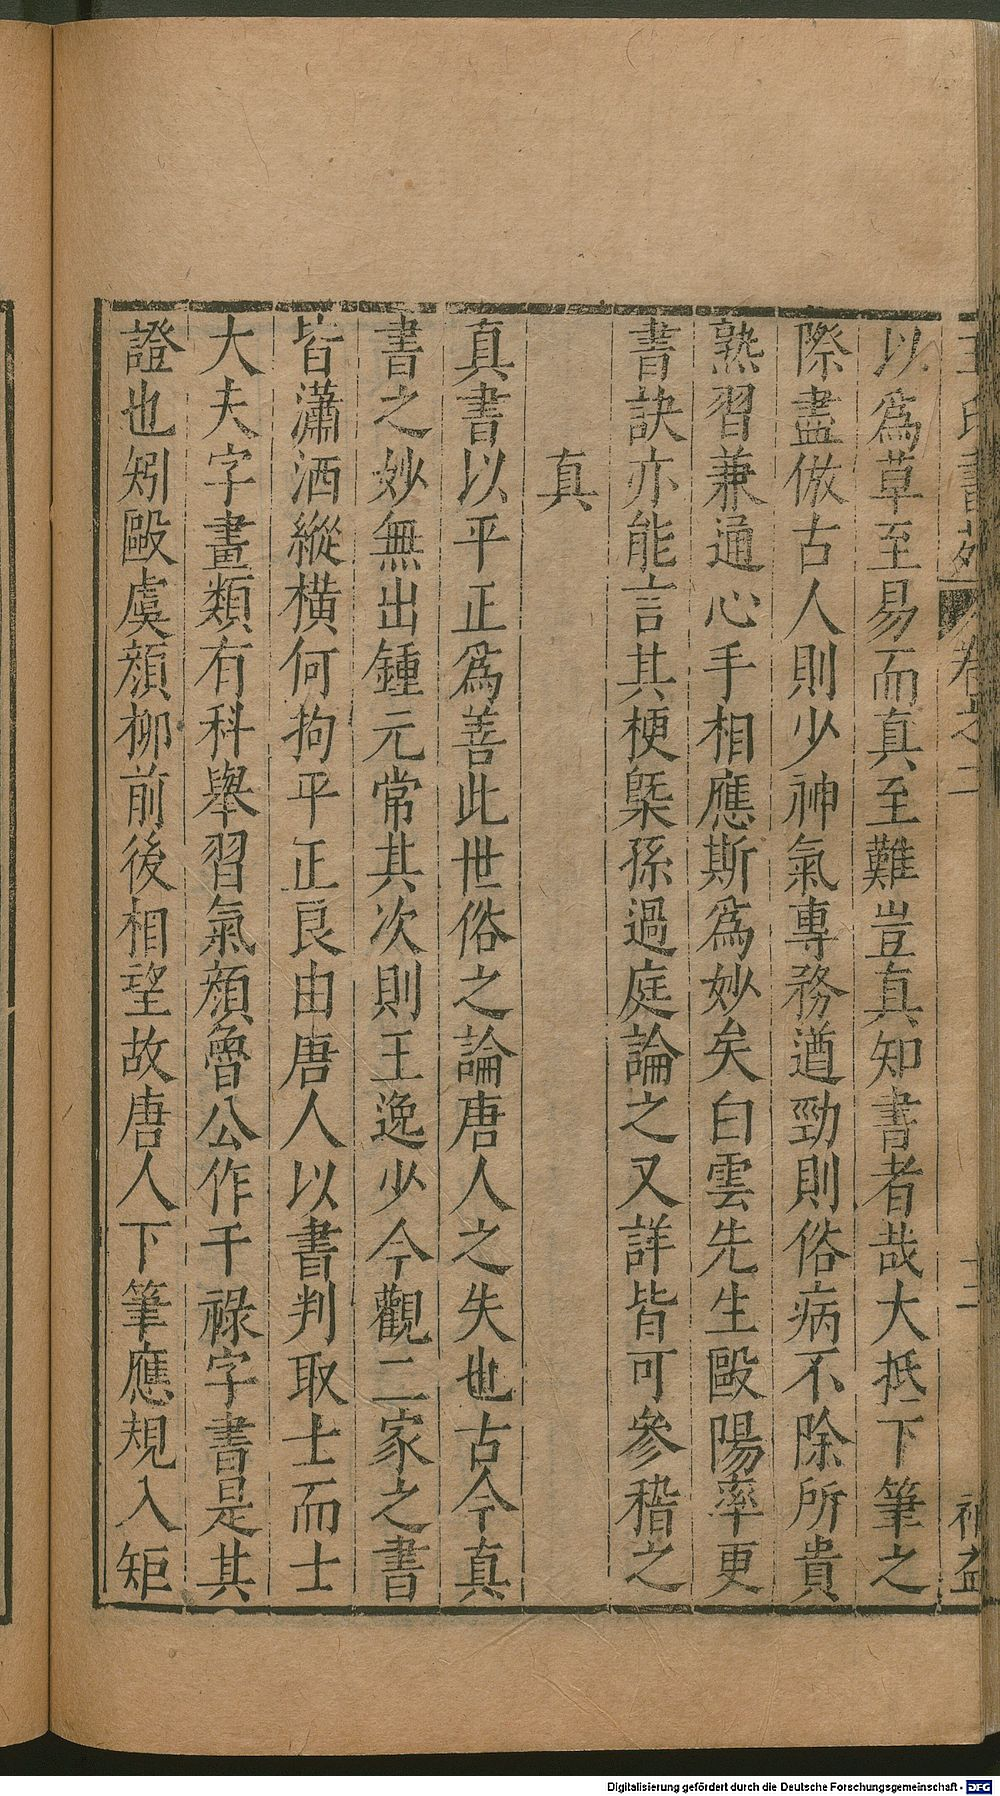 王氏書苑 卷之二 十二 補益
以爲草至易而真至難豈真知書者哉大抵下筆之
際盡倣古人則少神氣專務遒勁則俗病不除所貴
熟習兼通心手相應斯爲妙矣白雲先生毆陽率更
書訣亦能言其梗槩孫過庭論之又詳皆可參稽之
真
真書以平正爲善此世俗之論唐人之失也古今真
書之妙無出鍾元常其次則王逸少今觀二家之書
皆瀟洒縱橫何拘平正良由唐人以書判取士而士
大夫字畫類有科舉習氣顔魯公作干祿字書是其
證也矧毆虞顔柳前後相望故唐人下筆應規入矩
Digitalisierung gefördert durch die Deutsche Forschungsgemeinschaft - DFG